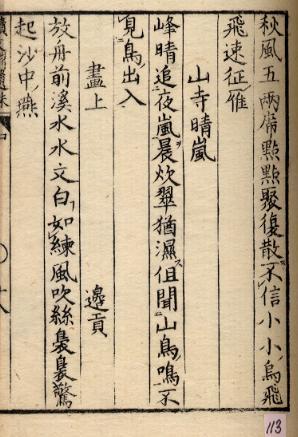 秋風五兩席點點聚復散不信小小烏飛
飛速征雁
山寺晴嵐
峰晴追夜嵐晨炊翠猶濕但聞山鳥鳴不
見鳥出入
畫上 邊貢
放舟前溪水水文白如練風吹絲裊裊驚
起沙中燕
113